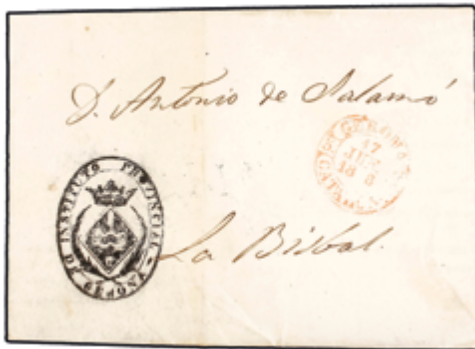 D. Antonio de Salamó
GERONA
17
JUL
18
INSTITUTO PROVINCIAL
DE GERONA
La Bisbal.